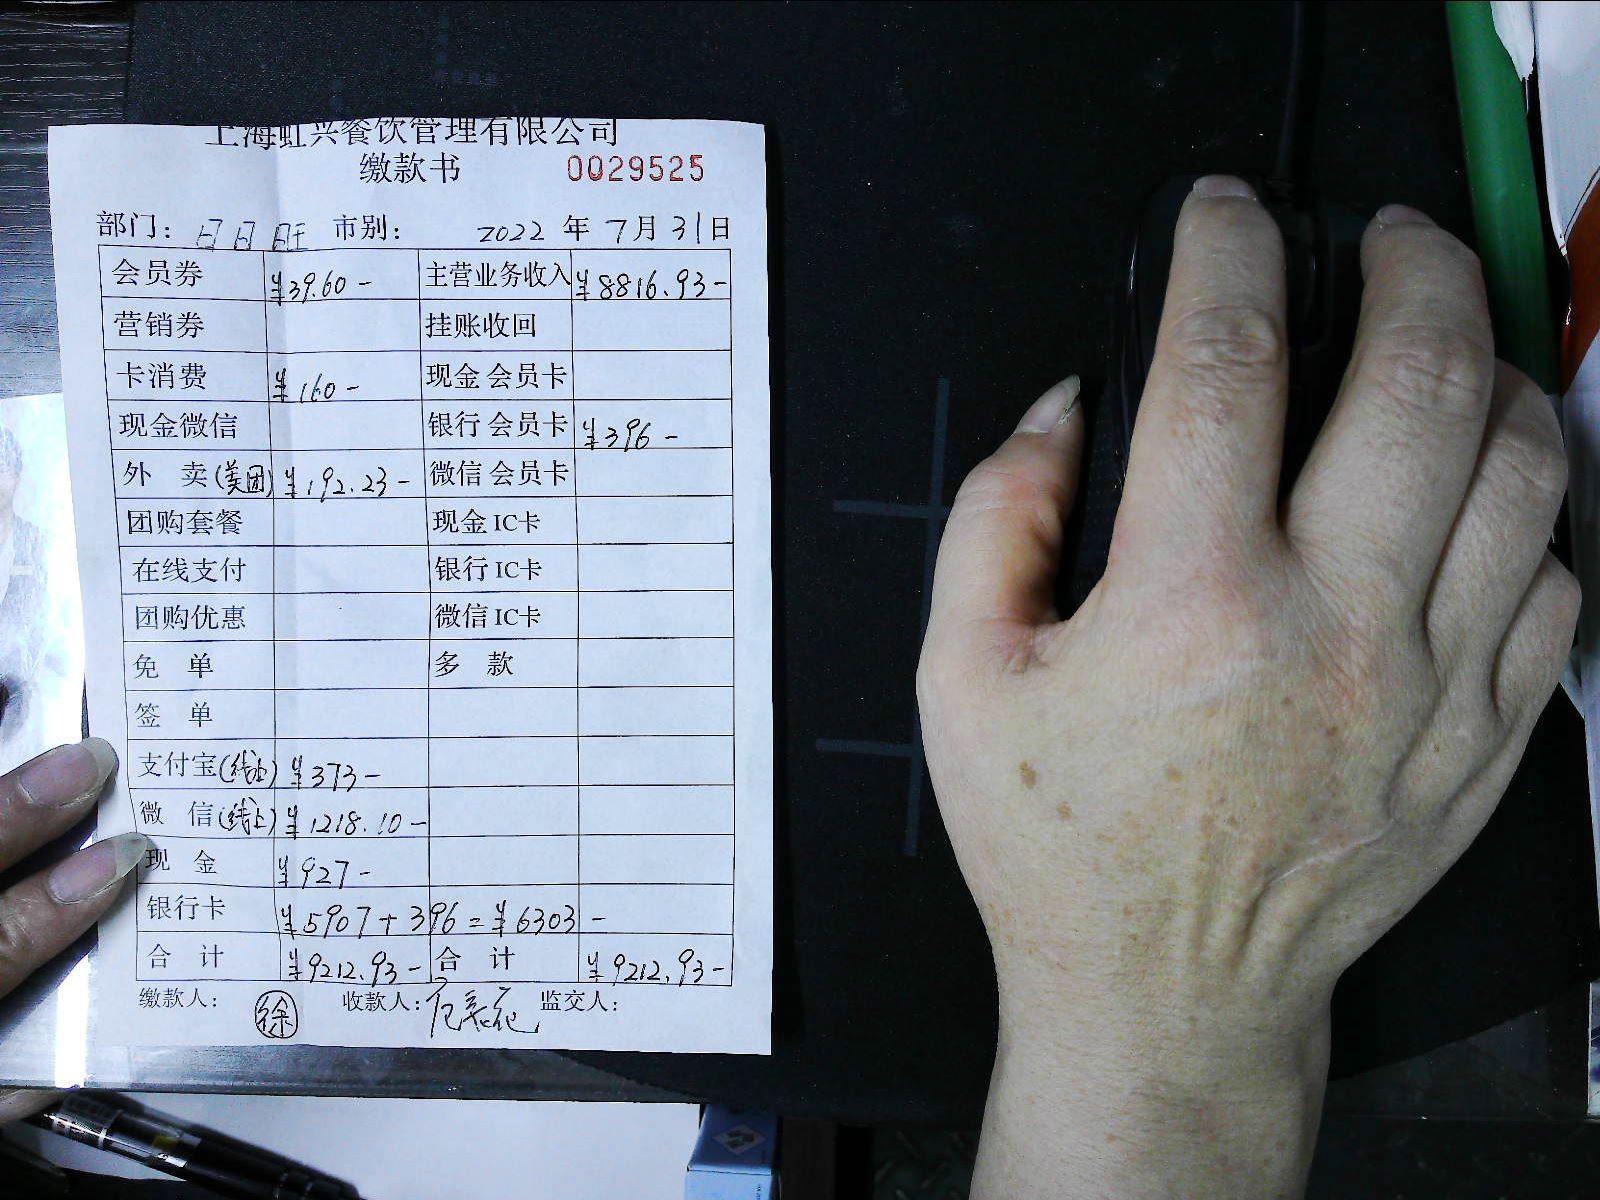 上海虹兴餐饮管理有限公司
缴款书 0029525
部门: 日日旺 市别: 2022 年 7月 31日
会员券 ¥39.60- 主营业务收入 ¥8816.93-
营销券 挂账收回
卡消费 ¥160- 现金 会员卡
现金微信 银行 会员卡 ¥396-
外 卖(美团) ¥192.23- 微信 会员卡
团购套餐 现金 IC卡
在线支付 银行 IC卡
团购优惠 微信 IC卡
免 单 多 款
签 单
支付宝(线上) ¥373-
微 信(线上) ¥1218.10-
现 金 ¥927-
银行卡 ¥5907+396=¥6303-
合 计 ¥9212.93- 合 计 ¥9212.93-
缴款人: 徐 收款人: 监交人: